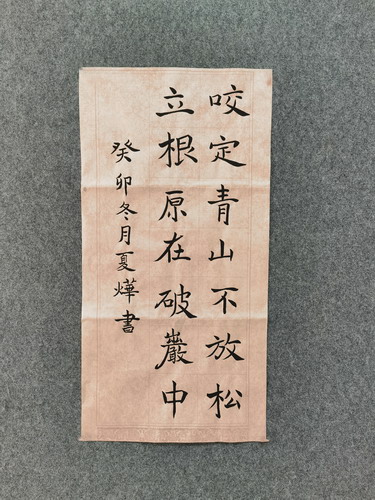 咬定青山不放松
立根原在破巖中
癸卯冬月夏燁書